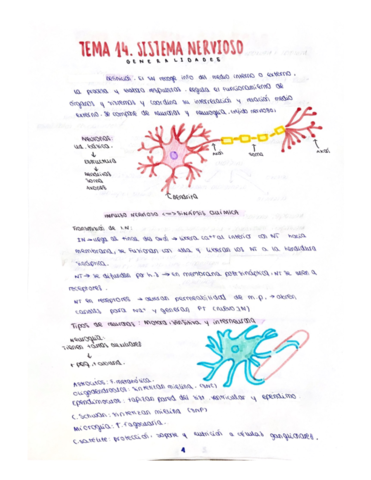 TEMA 14. SISTEMA NERVIOSO
GENERALIDADES
Definición: El SN recoge info del medio interno o externo,
la procesa y elabora respuestas. Regula el funcionamiento de
órganos y sistemas y coordina su interrelación y relación medio
externo. Se compone de neuronas y neuroglía. Tejido nervioso.
Neurona
ud. básica
estructura
dendritas
soma
axones
axón
soma
axón
dendrita
IMPULSO NERVIOSO SINAPSIS QUÍMICA
Transmisión de I.N.
IN → llega al final del axón → entra Ca al interior NT hacia
membrana, se fusionan con ella y liberan los NT a la hendidura
sináptica.
NT → se difunden por h.s → en membrana postsináptica, NT se unen a
receptores.
NT en receptores → aumentan permeabilidad de m.p. → abren
canales para Na⁺ y generan PT (nuevo IN)
Tipos de neuronas: motora, sensitiva y interneurona
Neuroglía:
+ peq. + abund.
Astrocitos: f. metabólica.
Oligodendrocitos: sintetizan mielina (SNC)
Ependimocitos: tapizan pared del sist. ventricular y epéndimo
C. Schwan: sintetizan mielina (SNP)
Microglía: f. fagocitaria.
C. satélite: protección, soporte y nutrición a células ganglionares.